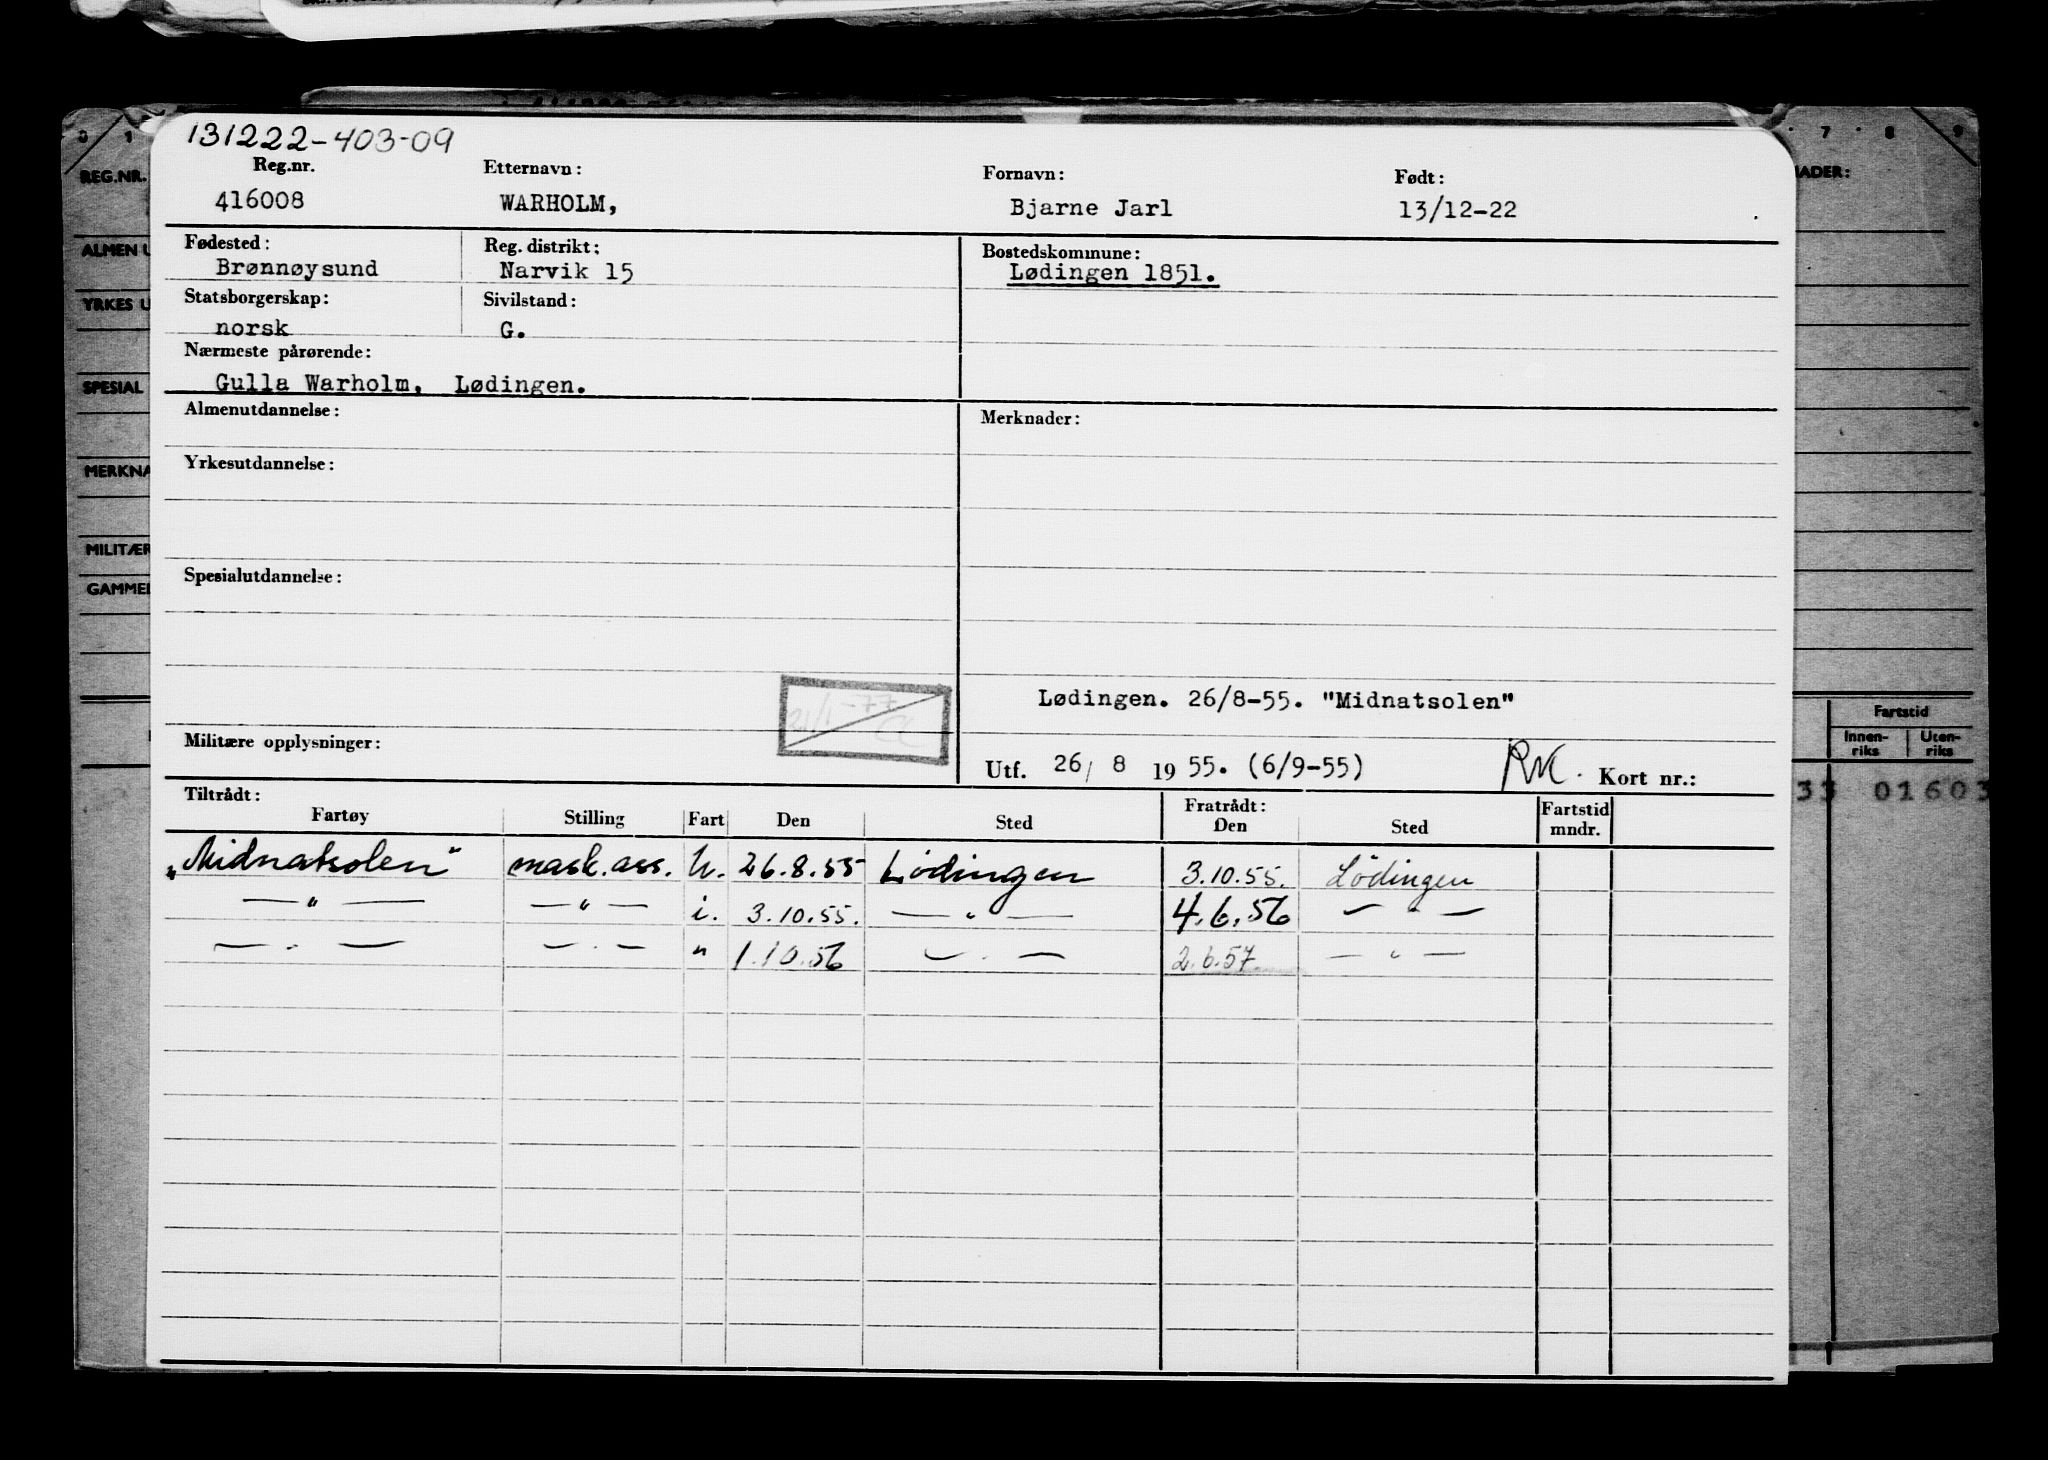 131222-403-09
Reg.nr. Etternavn: Fornavn: Født:
416008 WARHOLM, Bjarne Jarl 13/12-22
Fødested: Reg. distrikt: Bostedskommune:
Brønnøysund Narvik 15 Lødingen 1851.
Statsborgerskap: Sivilstand:
norsk G.
Nærmeste pårørende:
Gulla Warholm, Lødingen.
Almenutdannelse: Merknader:
Yrkesutdannelse:
Spesialutdannelse:
Lødingen. 26/8-55. "Midnatsolen"
21/1-77
Militære opplysninger:
Utf. 26/ 8 19 55. (6/9-55) Kort nr.:
Tiltrådt: Fratrådt: Fartstid
Fartøy Stilling Fart Den Sted Den Sted mndr.
"Midnatsolen" mask.ass. U. 26.8.55 Lödingen 3.10.55. Lödingen
— " — — " — i. 3.10.55. — " — 4.6.56 — " —
— " — — " — " 1.10.56 — " — 2.6.57 — " —
0 1 7 8 9
REG.NR. NADER:
ALMEN U
YRKES U
SPESIAL
MERKNA
MILITÆR
GAMMEL
Fartstid
Innen- Uten-
riks riks
33 01603